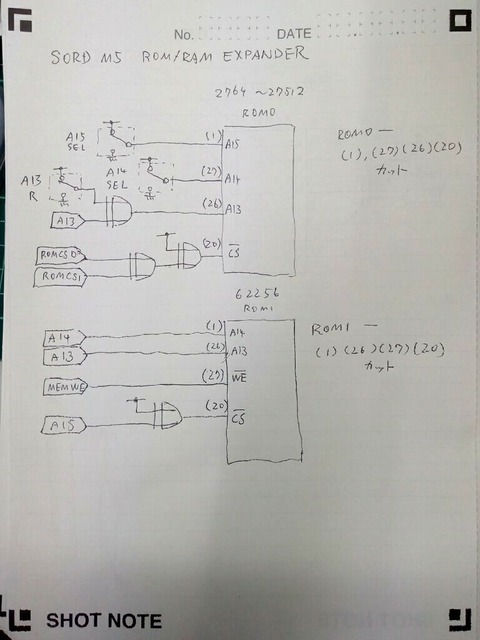 No. DATE
SORD M5 ROM/RAM EXPANDER
2764 ~27512
ROM0
A15
SEL
(1)
A15
ROM0 —
(1), (27) (26) (20)
カット
A14
SEL
(27)
A14
A13
R
(26)
A13
A13
(20)
CS
ROMCS1
62256
ROM1
A14
(1)
A14
ROM1 —
(1) (26) (27) (20)
カット
A13
(26)
A13
MEMWE
(27)
WE
A15
(20)
CS
SHOT NOTE